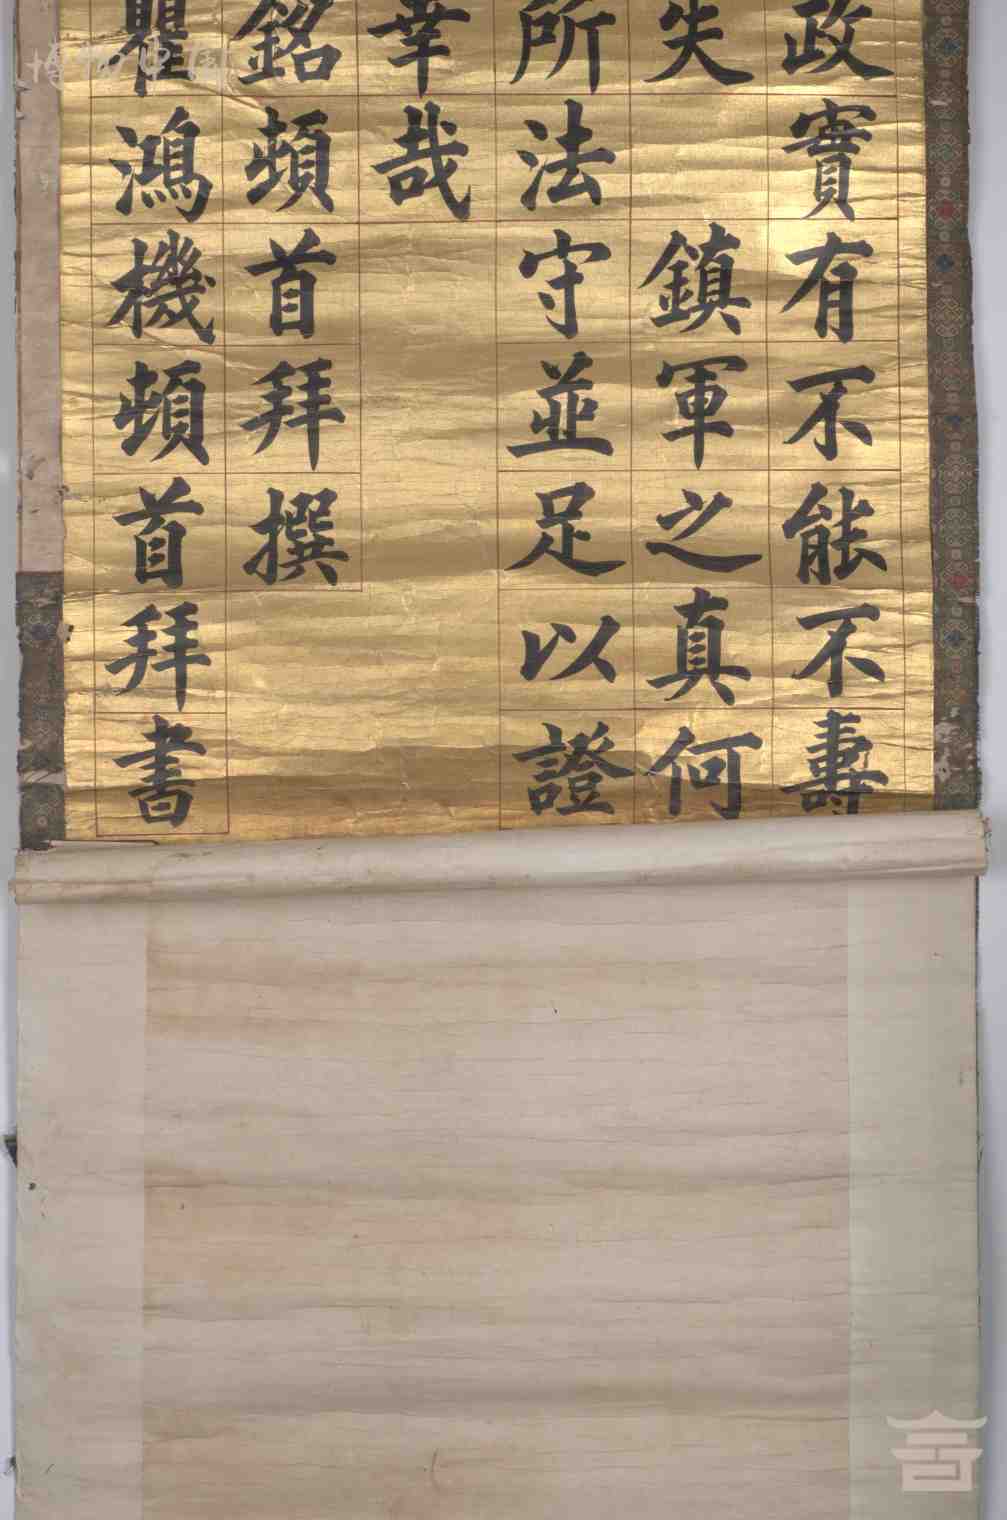 政實有不能不壽
失 鎮軍之真何
所法守並足以證
幸哉
銘頓首拜撰
瞿鴻機頓首拜書